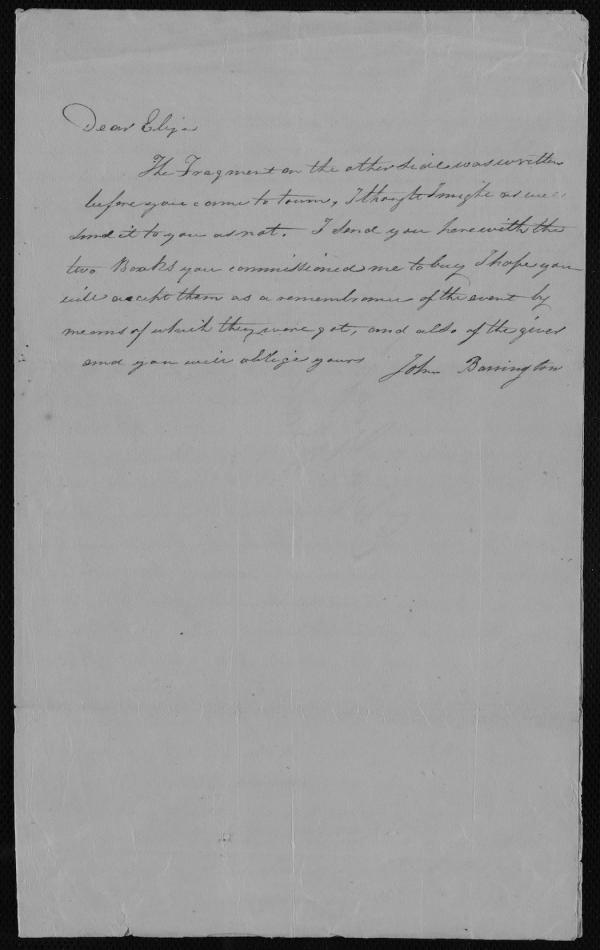 Dear Eliza
The Fragment on the other side was written
before you came to town, I thought I might as well
send it to you as not. I send you herewith the
two Books you commissioned me to buy I hope you
will accept them as a remembrance of the event by
means of which they were got, and also of the giver
and you will oblige yours John Barrington